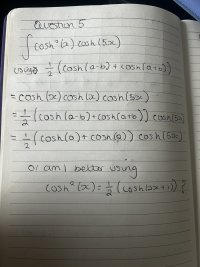 Question 5
∫ cosh²(x) cosh(5x)
using 1/2 (cosh(a-b) + cosh(a+b))
= cosh(x) cosh(x) cosh(5x)
= 1/2 (cosh(a-b) + cosh(a+b)) cosh(5x)
= 1/2 (cosh(0) + cosh(2)) cosh(5x)
or am I better using
cosh²(x) = 1/2 (cosh2x + 1) ?